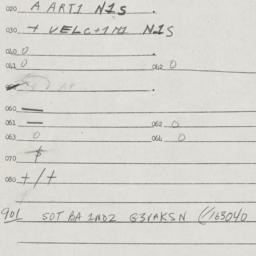 020 A ART1 N1S .
030 + VELC+1M1 N1S
040 0 .
041 0 042 0
.
060 —
061 — 062 0
063 0 064 0
070 $
080 +/+
901 SOT BA 1ND2 G3VAKSN